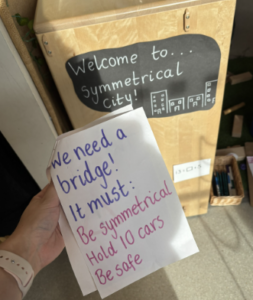 Welcome to...
symmetrical
city!
We need a
bridge!
It must:
Be symmetrical
Hold 10 cars
Be safe